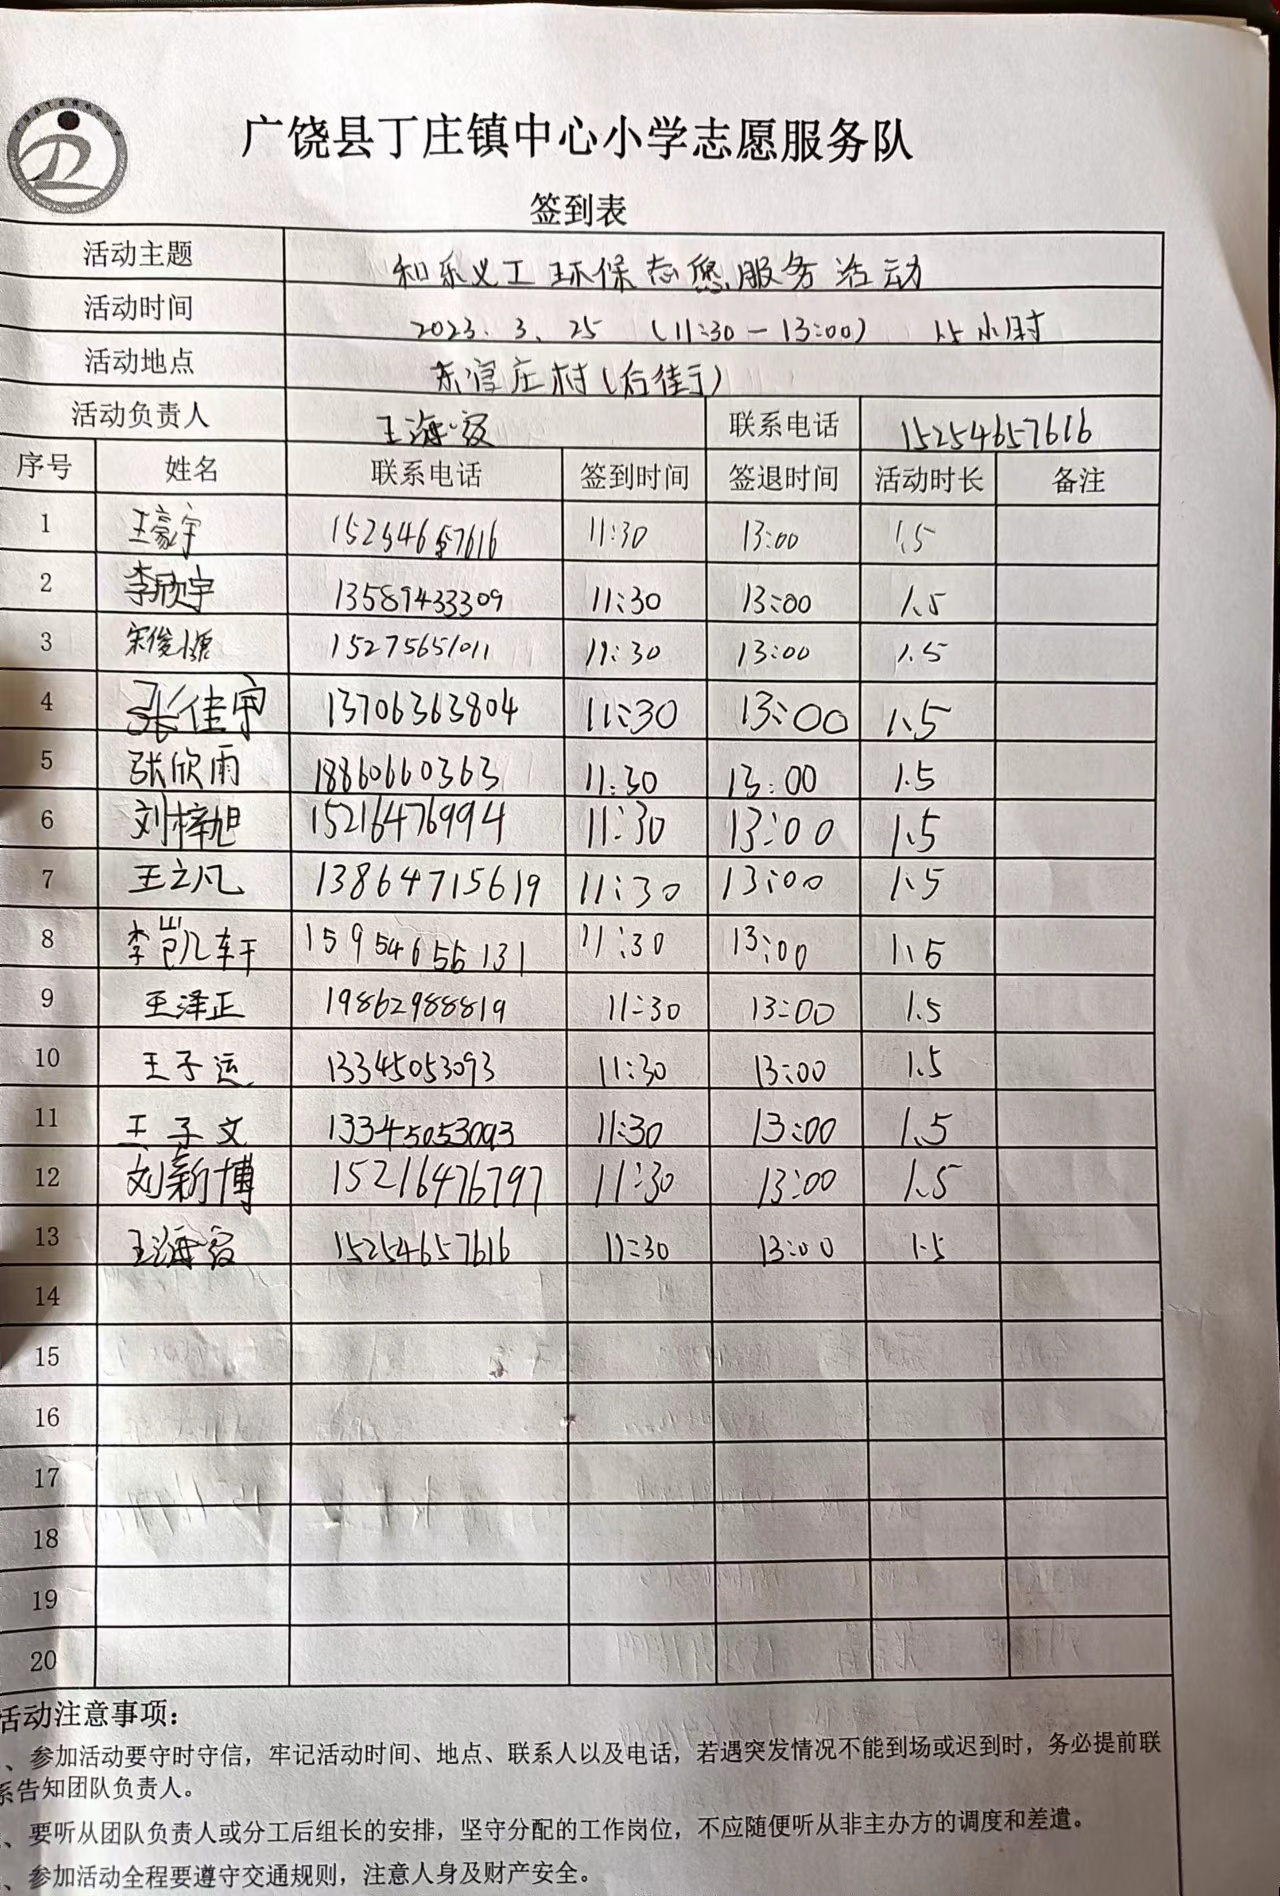 广饶县丁庄镇中心小学志愿服务队
签到表
活动主题 和乐义工环保志愿服务活动
活动时间 2023.3.25 (11:30-13:00) 1.5小时
活动地点 东官庄村(后街)
活动负责人 王海霞 联系电话 15254657616
序号 姓名 联系电话 签到时间 签退时间 活动时长 备注
1 王豪宇 15254657616 11:30 13:00 1.5
2 李欣宇 13589433309 11:30 13:00 1.5
3 宋俊 15275651011 11:30 13:00 1.5
4 张佳宁 13706363804 11:30 13:00 1.5
5 张欣雨 18860660363 11:30 13:00 1.5
6 刘梓旭 15216476994 11:30 13:00 1.5
7 王立凡 13864715619 11:30 13:00 1.5
8 李凯轩 15954656131 11:30 13:00 1.5
9 王泽正 19862988819 11:30 13:00 1.5
10 王子运 13345053093 11:30 13:00 1.5
11 王子文 13345053093 11:30 13:00 1.5
12 刘新博 15216476797 11:30 13:00 1.5
13 王海霞 15254657616 11:30 13:00 1.5
14
15
16
17
18
19
20
活动注意事项：
、参加活动要守时守信，牢记活动时间、地点、联系人以及电话，若遇突发情况不能到场或迟到时，务必提前联
系告知团队负责人。
、要听从团队负责人或分工后组长的安排，坚守分配的工作岗位，不应随便听从非主办方的调度和差遣。
、参加活动全程要遵守交通规则，注意人身及财产安全。